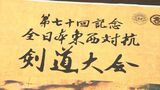 第七十回記念
全日本東西対抗
剣道大会